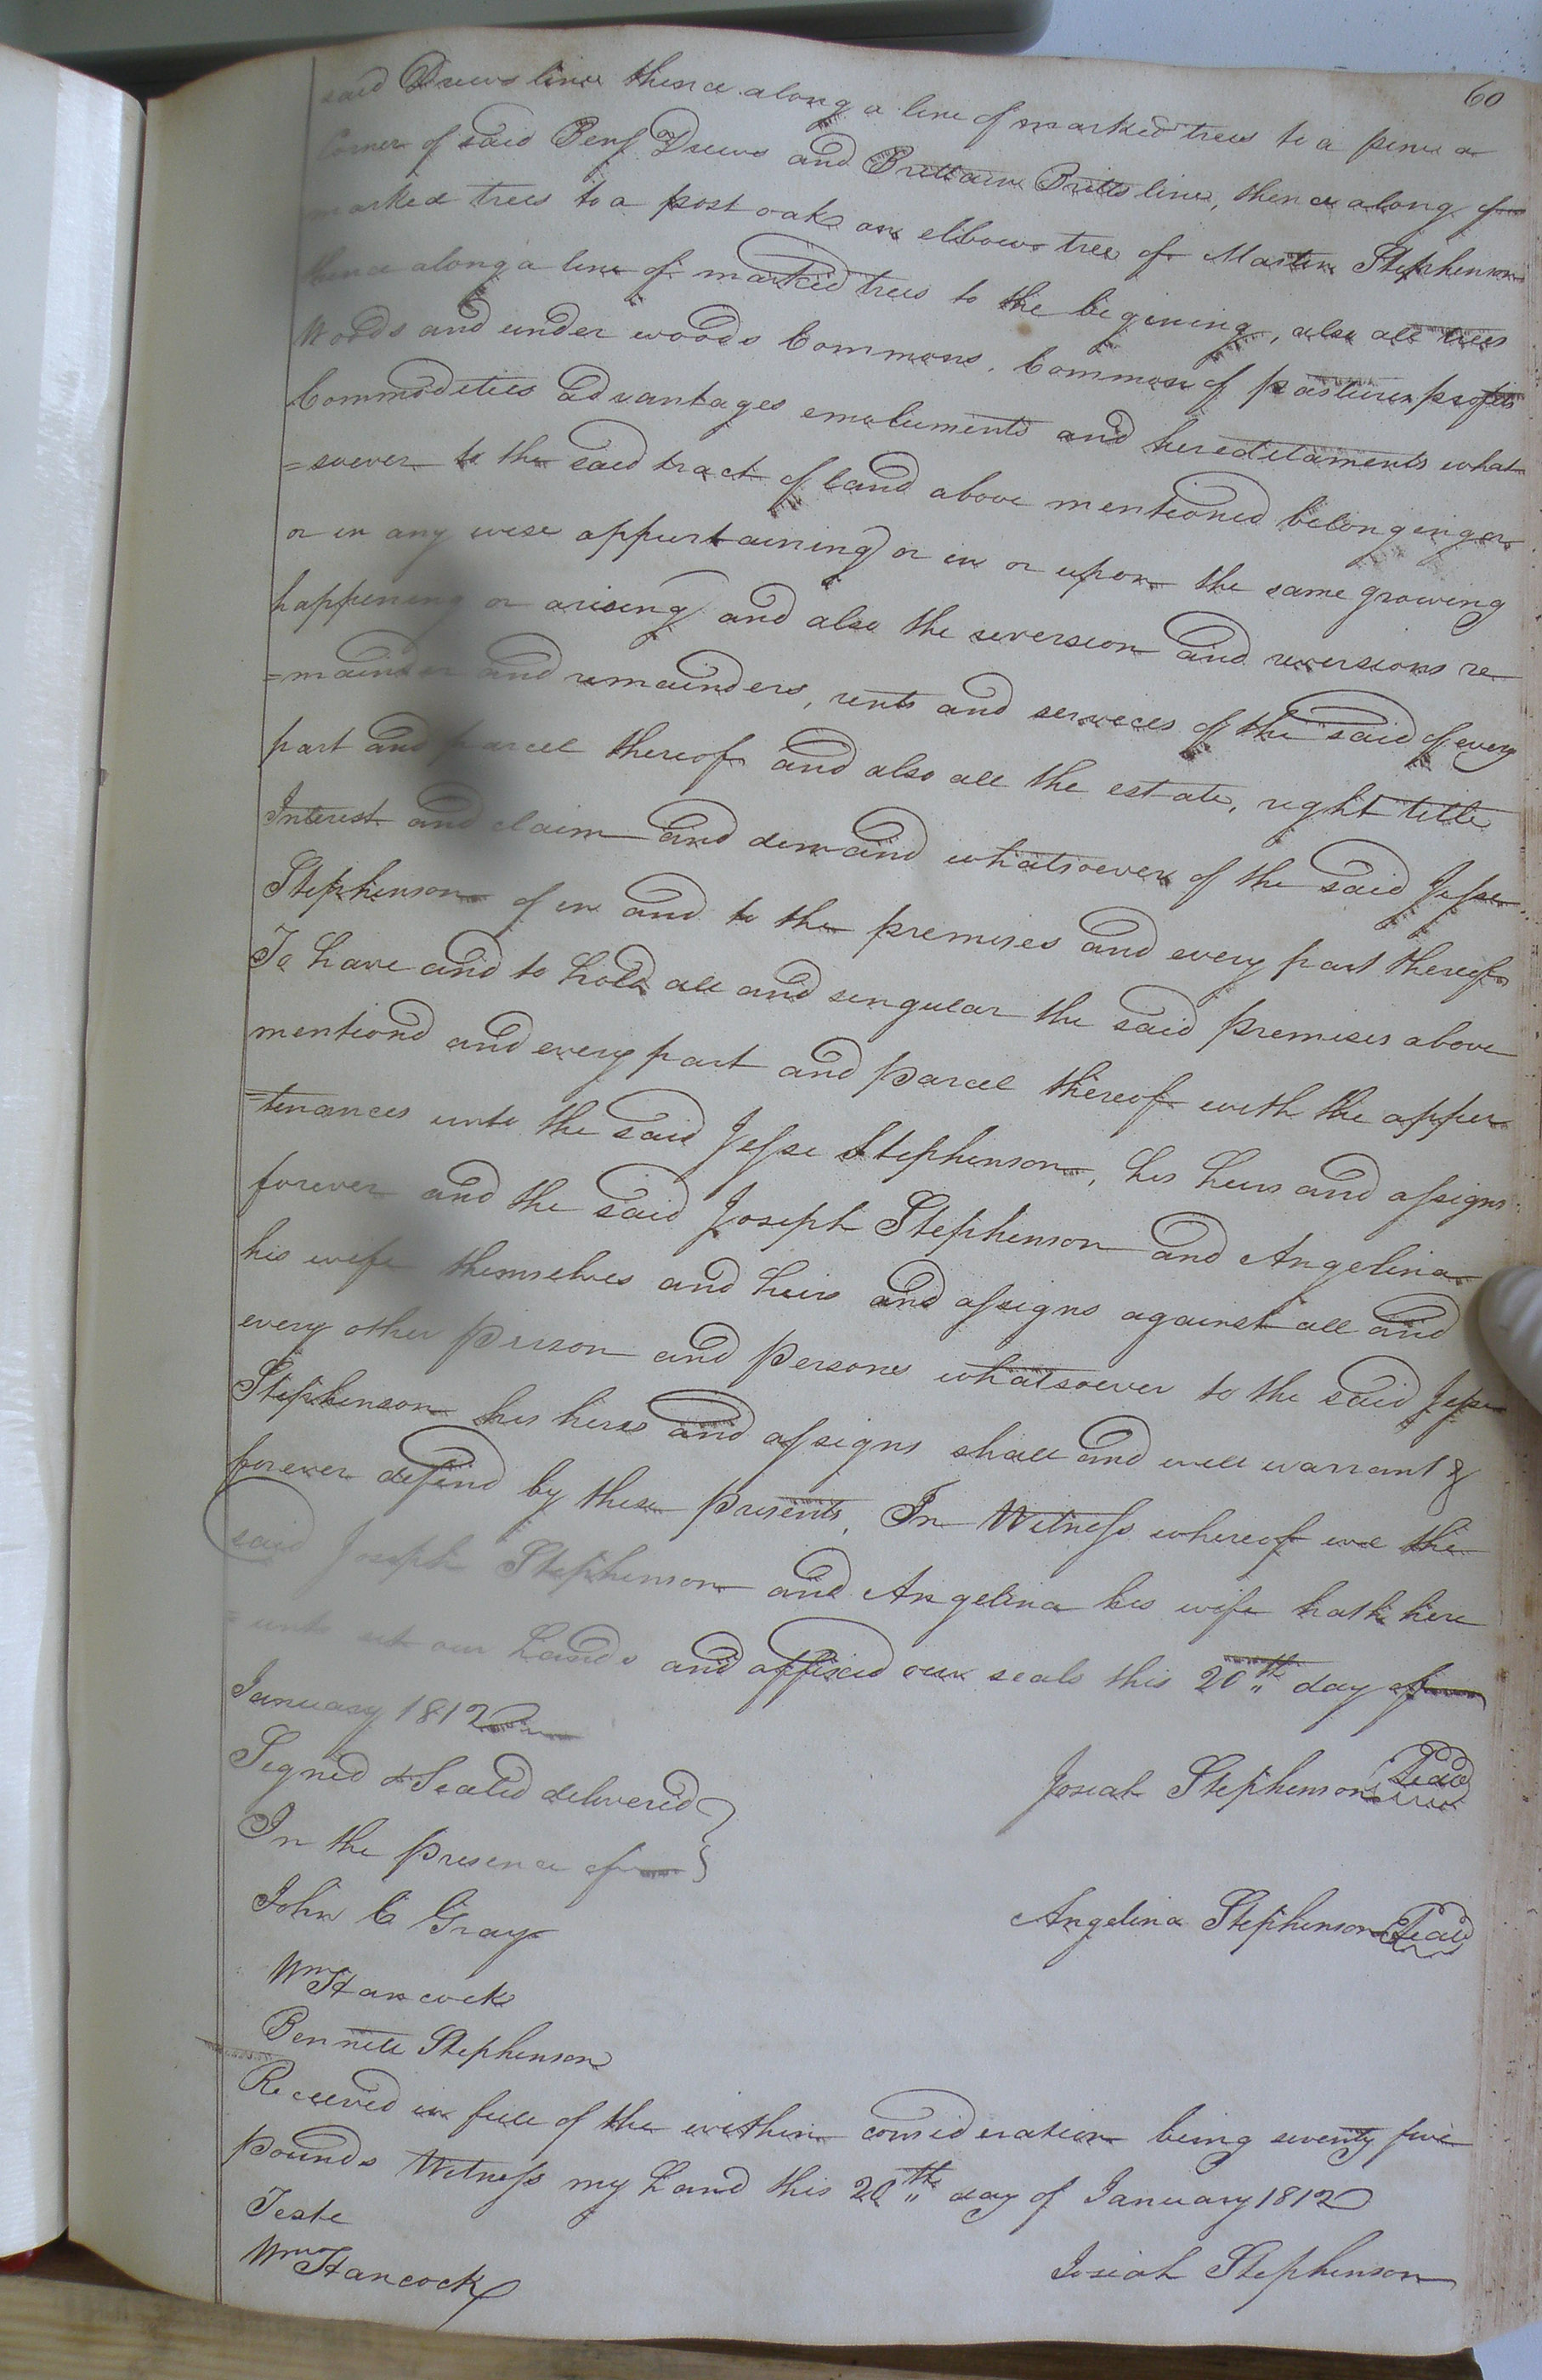 60
said Drews line thence along a line of marked trees to a pine a
Corner of said Benj Drews and Brittain Britts line, thence along
marked trees to a post oak an elbow tree of Martin Stephenson
thence along a line of marked trees to the begining, also all trees
Woods and under woods Commons, Common of pasture profits
Commodities advantages emoluments and hereditaments what
=soever to the said tract of land above mentioned belonging or
or in any wise appurtaining or in or upon the same growing
happening or arising and also the reversion and reversions re
=mainder and remainders, rents and services of the said of every
part and parcel thereof and also all the estate, right title
Interest and claim and demand whatsoever of the said Jesse
Stephenson of in and to the premises and every part thereof
To have and to hold all and singular the said premises above
mentiond and every part and parcel thereof with the appur
=tenances unto the said Jesse Stephenson, his heirs and assigns
forever and the said Joseph Stephenson and Angelina
his wife themselves and heirs and assigns against all and
every other person and persons whatsoever to the said Jesse
Stephenson his heirs and assigns shall and will warrant &
forever defend by these presents, In Witness whereof we the
said Joseph Stephenson and Angelina his wife hath here
=unto set our hands and affixed our seals this 20th day of
January 1812
Signed & Sealed delivered
In the presence of
Josiah Stephenson Seal
John C Gray
Angelina Stephenson Seal
Wm Hancock
Bennett Stephenson
Received in full of the within consideration being seventy five
pounds Witness my hand this 20th day of January 1812
Teste
Wm Hancock
Josiah Stephenson